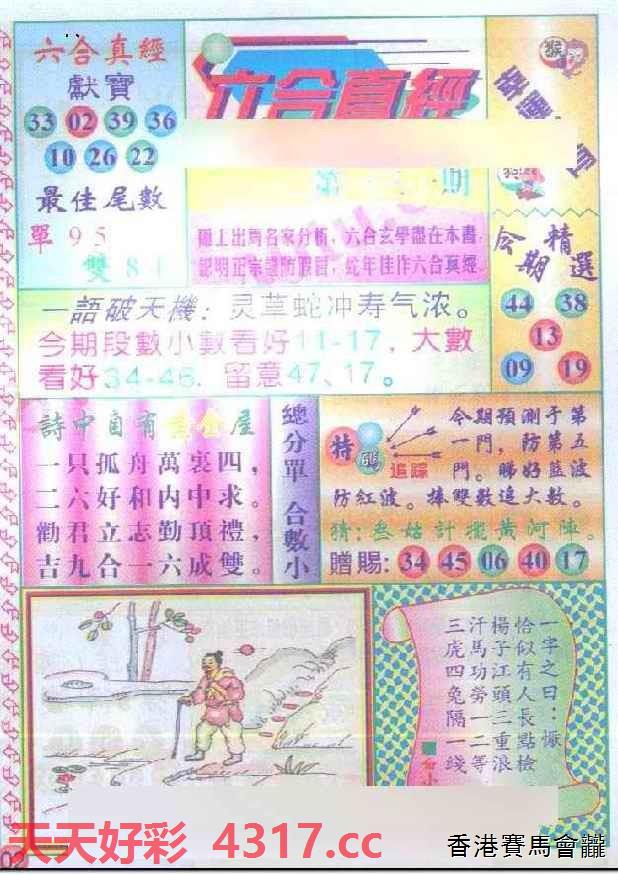 六合真經
獻寶
33 02 39 36
10 26 22
最佳尾數
單 9 5
雙 8
六合真經
第 期
六合玄學盡在本書
蛇年佳作六合真經
猴
今期精選
44 38
13
09 19
一語破天機：灵草蛇冲寿气浓。
今期段數小數看好11-17，大數
看好34-46．留意47、17。
詩中自有黃金屋
一只孤舟萬裏四，
二六好和内中求。
勸君立志勤頂禮，
吉九合一六成雙。
總分單 合數小
特碼
追踪
今期預測于第
一門，防第五
門。睇好藍波
防紅波。捧雙數追大數。
猜：叁姑計擺黄河陣。
贈賜：34 45 06 40 17
一字之曰：慚
恰似有人長點檢
楊子江頭三重浪
汗馬功勞一二等
三虎四兔隔一綫
天天好彩 4317.cc
香港賽馬會